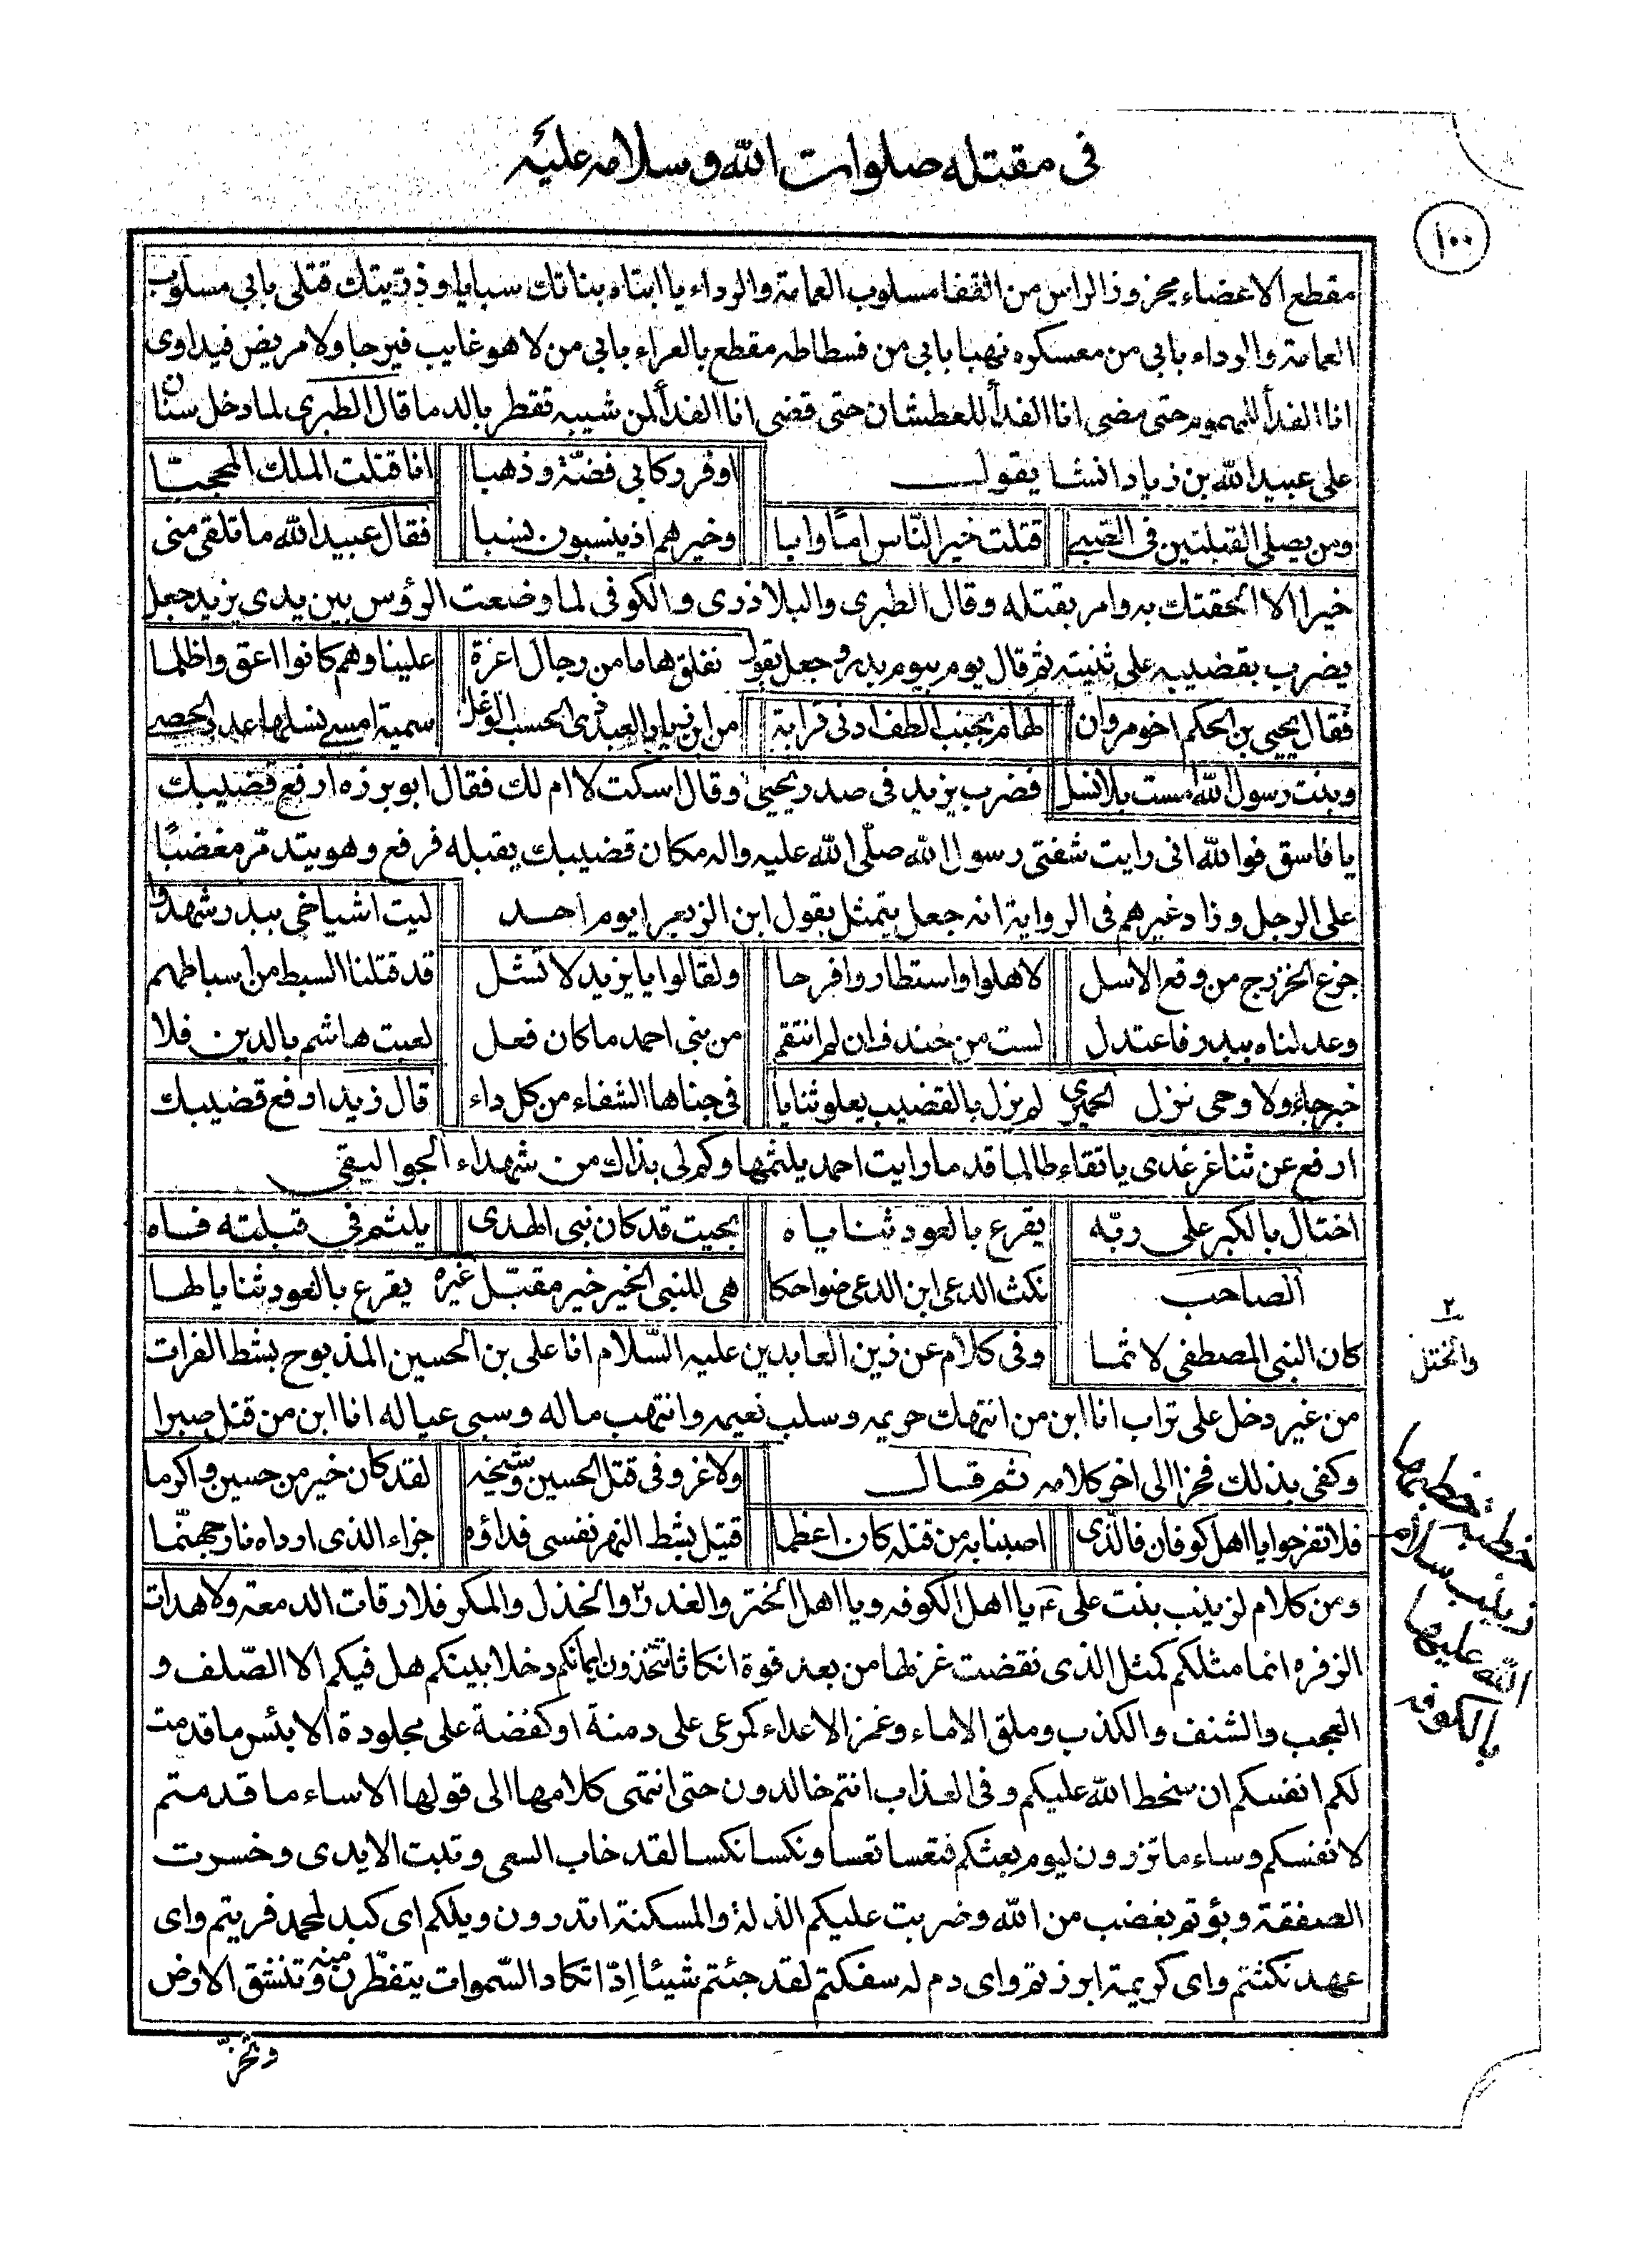 في مقتله صلوات الله وسلامه عليه
١٠٠
مقطع الاعضاء مجزوز الراس من القفا مسلوب العمامة والرداء يا ابتاه بناتك سبايا وذريتك قتلى بابي مسلوب
العمامة والرداء بابي من معسكره نهبا بابي من فسطاطه مقطع بالعراء بابي من لا هو غايب فيرجا ولا مريض فيداوى
انا الفدأ للمهموم حتى مضى انا الفدأ للعطشان حتى قضى انا الفدأ لمن شيبه تقطر بالدما قال الطبري لما دخل سنان
على عبيد الله بن زياد انشا يقول اوفر ركابي فضّة وذهبا انا قتلت الملك المحجبّا
ومن يصلى القبلتين فى الصّبى قتلت خير النّاس امّا وابا وخيرهم اذ ينسبون نسبا فقال عبيد الله ما تلقى منى
خيرا الا الحقتك به وامر بقتله وقال الطبرى والبلاذرى والكوفى لما وضعت الرؤس بين يدى يزيد جعل
يضرب بقضيبه على ثنيته ثم قال يوم بيوم بدر وجعل يقول نفلق هاما من رجال اعزة علينا وهم كانوا اعق واظلما
فقال يحيى بن الحكم اخو مروان لهام بجنب الطف ادنى قرابة من ابن زياد العبد ذى الحسب الوغل سمية امسى نسلها عدد الحصى
وبنت رسول الله امست بلا نسل فضرب يزيد فى صدر يحيى وقال اسكت لا ام لك فقال ابو برزه ارفع قضيبك
يا فاسق فوالله انى رايت شفتى رسول الله صلّى الله عليه واله مكان قضيبك يقبله فرفع وهو يتدمّر مغضبًا
على الرجل وزاد غيرهم فى الرواية انه جعل يتمثل بقول ابن الزبعرا يوم احد ليت اشياخى ببدر شهدوا
جزع الخزرج من وقع الاسل لاهلوا واستطاروا فرحا ولقالوا يا يزيد لا تشل قد قتلنا السبط من اسباطهم
وعدلناه ببدر فاعتدل لست من خندف ان لم انتقم من بنى احمد ما كان فعل لعبت هاشم بالدين فلا
خبر جاء ولا وحى نزل الحميرى لم يزل بالقضيب يعلو ثنايا فى جناها الشفاء من كل داء قال زيد ارفع قضيبك
ارفع عن ثنا غر غدى باتقاء طالما قد ما رايت احمد يلثمها وكم لى بذاك من شهداء الجواليقى
اختال بالكبر على ربّه يقرع بالعود ثناياه بحيث قد كان نبى الهدى يلثم فى قبلته فاه
الصاحب نكث الدعى ابن الدعى ضواحكا هى للنبى الخير خير مقبّل غيره يقرع بالعود ثنايا لها
كان النبى المصطفى لاثما وفى كلام عن زين العابدين عليه السّلام انا على بن الحسين المذبوح بشط الفرات
من غير دخل على تراب انا ابن من انتهك حريمه وسلب نعيمه وانتهب ماله وسبى عياله انا ابن من قتل صبرا
وكفى بذلك فخرا الى اخر كلامه ثم قال ولا غرو فى قتل الحسين وشيخه لقد كان خير من حسين واكرما
فلا تفرحوا يا اهل كوفان فالّذى اصبنا به من قتله كان اعظما قتيل بشط النهر نفسى فداؤه جزاء الذى اوداه نار جهنّما
ومن كلام لزينب بنت على ع يا اهل الكوفه ويا اهل الختر والغدر٢ والخذل والمكر فلا رقات الدمعة ولا هدات
الزفره انما مثلكم كمثل الذى نقضت غزلها من بعد قوة انكاثا تتّخذون ايمانكم دخلا بينكم هل فيكم الا الصّلف و
العجب والشنف والكذب وملق الاماء وغمز الاعداء كمرعى على دمنة او كفضة على مجلودة الا بئس ما قدمت
لكم انفسكم ان سخط الله عليكم وفى العذاب انتم خالدون حتى انتهى كلامها الى قولها الا ساء ما قدمتم
لانفسكم وساء ما تزرون ليوم بعثكم فتعسا تعسا ونكسا نكسا لقد خاب السعى وتبت الايدى وخسرت
الصفقة وبؤتم بغضب من الله وضربت عليكم الذلة والمسكنة اتدرون ويلكم اى كبد لمحمد فريتم واى
عهد نكثتم واى كريمة ابرزتم واى دم له سفكتم لقد جئتم شيئا اِدّا تكاد السّموات يتفطّرن منه وتنشق الارض
وتخرّ
٢
والختل
خطبة خطبتها
زينب سلام
الله عليها
بالكوفه